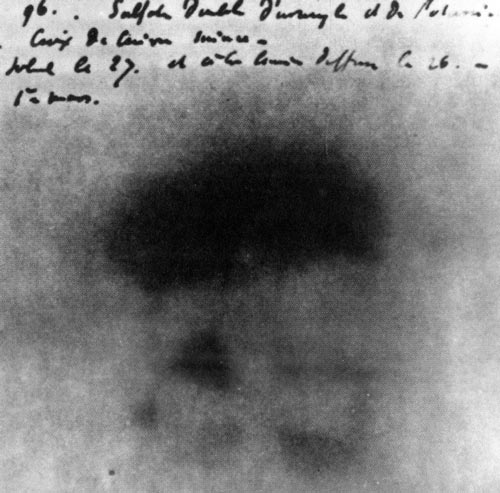 96. . Sulfate double d'uranyle et de
Croix de cuivre mince -
soleil le 27. et à la lumière diffuse le 26. -
1er mars.